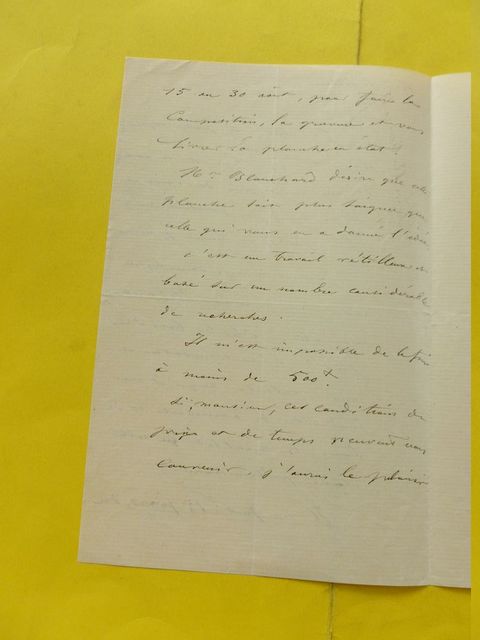 15 au 30 août, pour faire la
Composition, la gravure et vous
livrer la planche en état.
Mr Blanchard désire que cette
planche soit plus soignée que
celle qui vous en a donné l'idée
c'est un travail
basé sur un nombre considérable
de recherches.
Il m'est impossible de le faire
à moins de 500f.
Si, monsieur, ces conditions de
prix et de temps peuvent vous
convenir, j'aurai le plaisir